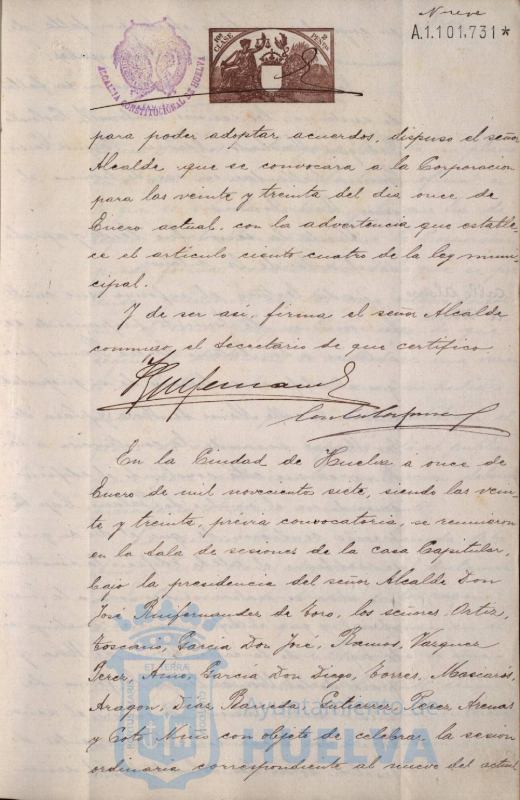 Nueve
A.1.101,731*
ALCALDIA CONSTITUCIONAL DE HUELVA
CLASE
PESETAS
para poder adoptar acuerdos, dispuso el señor
Alcalde que se convocara a la Corporacion
para las veinte y treinta del dia once de
Enero actual, con la advertencia que estable-
ce el articulo ciento cuatro de la ley muni-
cipal.
Y de ser asi, firma el señor Alcalde
conmigo el Secretario de que certifico
En la Ciudad de Huelva á once de
Enero de mil novecientos siete, siendo las vein-
te y treinta, prévia convocatoria, se reunieron
en la Sala de sesiones de la casa Capitular,
bajo la presidencia del señor Alcalde Don
José Ruifernandez de Toro, los señores, Ortiz,
Toscano, Garcia Don José, Ramos, Vazquez
Perez, Amo, Garcia Don Diego, Torres, Mascarós,
Aragon, Diaz Barreda, Gutierrez, Perez Arenas
y Coto Mino con objeto de celebrar la sesion
ordinaria correspondiente al nueve del actual
Ayuntamiento de
HUELVA